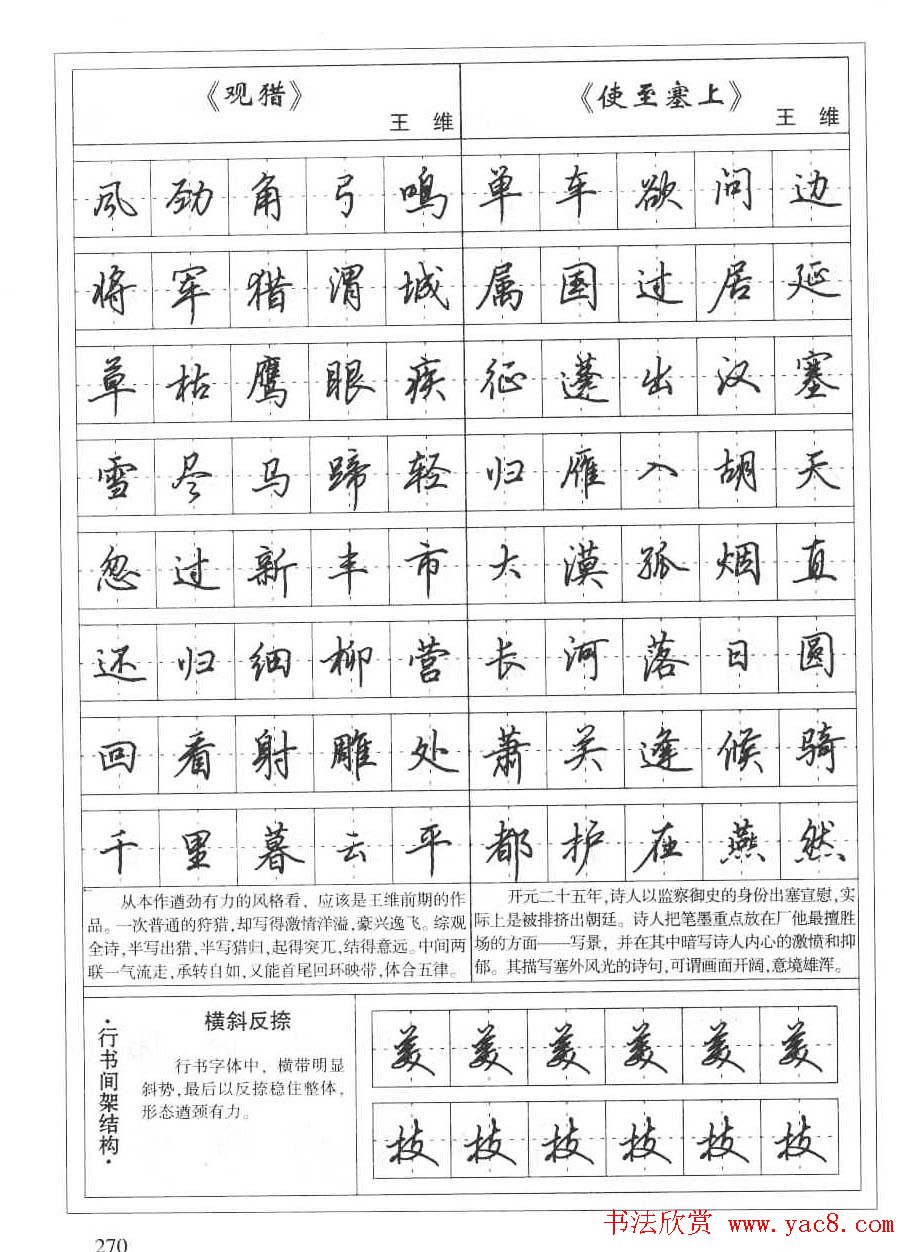 《观猎》
王 维
風劲角弓鸣
将军猎渭城
草枯鹰眼疾
雪尽马蹄轻
忽过新丰市
还归细柳营
回看射雕处
千里暮云平
从本作遒劲有力的风格看，应该是王维前期的作
品。一次普通的狩猎，却写得激情洋溢，豪兴逸飞。综观
全诗，半写出猎，半写猎归，起得突兀，结得意远。中间两
联一气流走，承转自如，又能首尾回环映带，体合五律。
《使至塞上》
王 维
单车欲问边
属国过居延
征蓬出汉塞
归雁入胡天
大漠孤烟直
长河落日圆
萧关逢候骑
都护在燕然
开元二十五年，诗人以监察御史的身份出塞宣慰，实
际上是被排挤出朝廷。诗人把笔墨重点放在厂他最擅胜
场的方面——写景，并在其中暗写诗人内心的激愤和抑
郁。其描写塞外风光的诗句，可谓画面开阔，意境雄浑。
·行书间架结构·
横斜反捺
行书字体中，横带明显
斜势，最后以反捺稳住整体，
形态遒颈有力。
美美美美美美
技技技技技技
书法欣赏 www.yac8.com
270